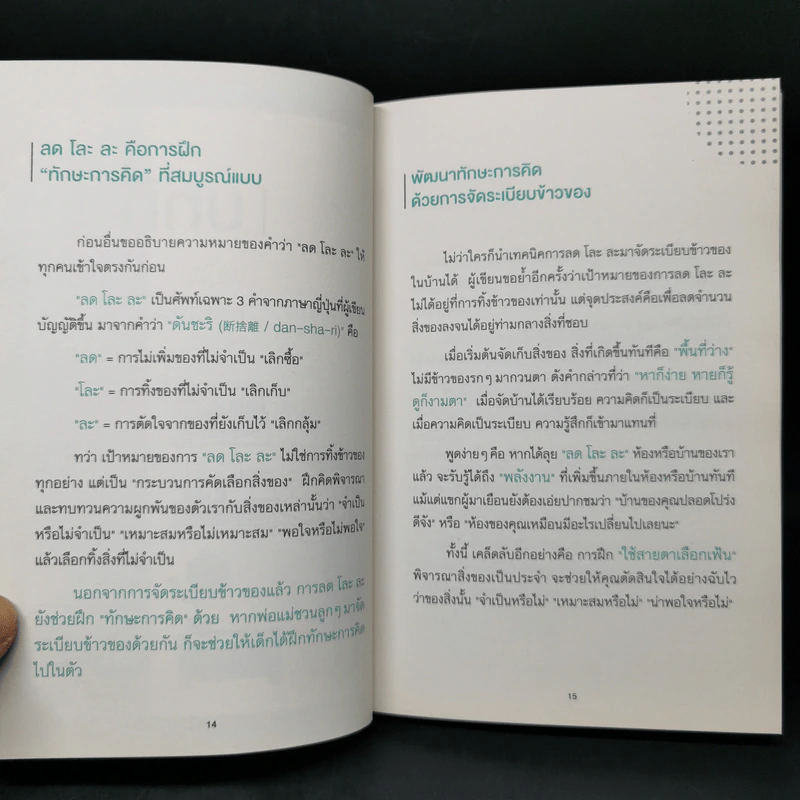 ลด โละ ละ คือการฝึก
"ทักษะการคิด" ที่สมบูรณ์แบบ
ก่อนอื่นขออธิบายความหมายของคำว่า "ลด โละ ละ" ให้
ทุกคนเข้าใจตรงกันก่อน
"ลด โละ ละ" เป็นศัพท์เฉพาะ 3 คำจากภาษาญี่ปุ่นที่ผู้เขียน
บัญญัติขึ้น มาจากคำว่า "ดันชะริ (断捨離 / dan-sha-ri)" คือ
"ลด" = การไม่เพิ่มของที่ไม่จำเป็น "เลิกซื้อ"
"โละ" = การทิ้งของที่ไม่จำเป็น "เลิกเก็บ"
"ละ" = การตัดใจจากของที่ยังเก็บไว้ "เลิกกลุ้ม"
ทว่า เป้าหมายของการ "ลด โละ ละ" ไม่ใช่การทิ้งข้าวของ
ทุกอย่าง แต่เป็น "กระบวนการคิดเลือกสิ่งของ" ฝึกคิดพิจารณา
และทบทวนความผูกพันของตัวเรากับสิ่งของเหล่านั้นว่า "จำเป็น
หรือไม่จำเป็น" "เหมาะสมหรือไม่เหมาะสม" "พอใจหรือไม่พอใจ"
แล้วเลือกทิ้งสิ่งที่ไม่จำเป็น
นอกจากการจัดระเบียบข้าวของแล้ว การลด โละ ละ
ยังช่วยฝึก "ทักษะการคิด" ด้วย หากพ่อแม่ชวนลูกๆ มาจัด
ระเบียบข้าวของด้วยกัน ก็จะช่วยให้เด็กได้ฝึกทักษะการคิด
ไปในตัว
14
พัฒนาทักษะการคิด
ด้วยการจัดระเบียบข้าวของ
ไม่ว่าใครก็นำเทคนิคการลด โละ ละมาจัดระเบียบข้าวของ
ในบ้านได้ ผู้เขียนขอย้ำอีกครั้งว่าเป้าหมายของการลด โละ ละ
ไม่ได้อยู่ที่การทิ้งข้าวของเท่านั้น แต่จุดประสงค์คือเพื่อลดจำนวน
สิ่งของลงจนได้อยู่ท่ามกลางสิ่งที่ชอบ
เมื่อเริ่มต้นจัดเก็บสิ่งของ สิ่งที่เกิดขึ้นทันทีคือ "พื้นที่ว่าง"
ไม่มีข้าวของรกๆ มากวนตา ดังคำกล่าวที่ว่า "หาก็ง่าย หายก็รู้
ดูก็งามตา" เมื่อจัดบ้านได้เรียบร้อย ความคิดก็เป็นระเบียบ และ
เมื่อความคิดเป็นระเบียบ ความรู้สึกก็เข้ามาแทนที่
พูดง่ายๆ คือ หากได้ลุย "ลด โละ ละ" ห้องหรือบ้านของเรา
แล้ว จะรับรู้ได้ถึง "พลังงาน" ที่เพิ่มขึ้นภายในห้องหรือบ้านทันที
แม้แต่แขกผู้มาเยือนยังต้องเอ่ยปากชมว่า "บ้านของคุณปลอดโปร่ง
ดีจัง" หรือ "ห้องของคุณเหมือนมีอะไรเปลี่ยนไปเลยนะ"
ทั้งนี้ เคล็ดลับอีกอย่างคือ การฝึก "ใช้สายตาเลือกเฟ้น"
พิจารณาสิ่งของเป็นประจำ จะช่วยให้คุณตัดสินใจได้อย่างฉับไว
ว่าของสิ่งนั้น "จำเป็นหรือไม่" "เหมาะสมหรือไม่" "น่าพอใจหรือไม่"
15